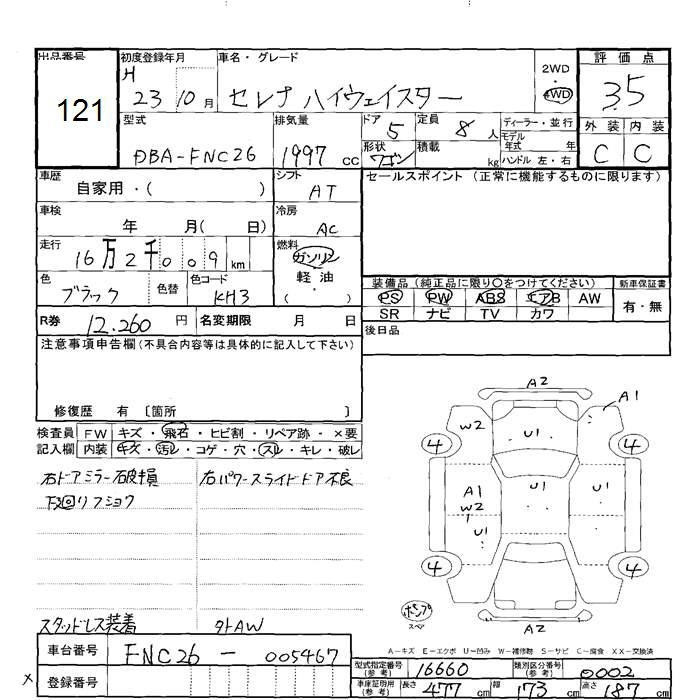 出品番号 初度登録年月 車名・グレード 2WD 評価点
121 H 23 10月 セレナ ハイウェイスター 4WD 3.5
型式 排気量 ドア 5 定員 8人 ディーラー・並行 外装 内装
DBA-FNC26 1997 cc 形状 ワゴン 積載 kg モデル年式 年式 ハンドル 左・右 C C
車歴 自家用・( ) シフト AT セールスポイント(正常に機能するものに限ります)
車検 年 月( 日) 冷房 AC
走行 16万2千009 km 燃料 ガソリン 軽油 ( )
色 ブラック 色替 色コード KH3
装備品(純正品に限り○をつけてください) 新車保証書
PS PW ABS エアB AW 有・無
SR ナビ TV カワ
R券 12.260 円 名変期限 月 日 後日品
注意事項申告欄(不具合内容等は具体的に記入して下さい)
修復歴 有 〔箇所 〕
検査員 FW キズ・飛石・ヒビ割・リペア跡・×要
記入欄 内装 キズ・汚レ・コゲ・穴・スレ・キレ・破レ
右ドアミラー破損 右パワースライドドア不良
下回リフショク
スタッドレス装着 外AW
A2
W2 U1 A1
4 4
A1 W2 U1 U1 U1
4 4
ポンプ スペア A2
A-キズ E-エクボ U-凹み W-補修跡 S-サビ C-腐食 XX-交換済
車台番号 FNC26 - 005467 型式指定番号(参考) 16660 類別区分番号(参考) 0002
× 登録番号 車庫証明用(参考) 長さ 477 cm 幅 173 cm 高さ 187 cm